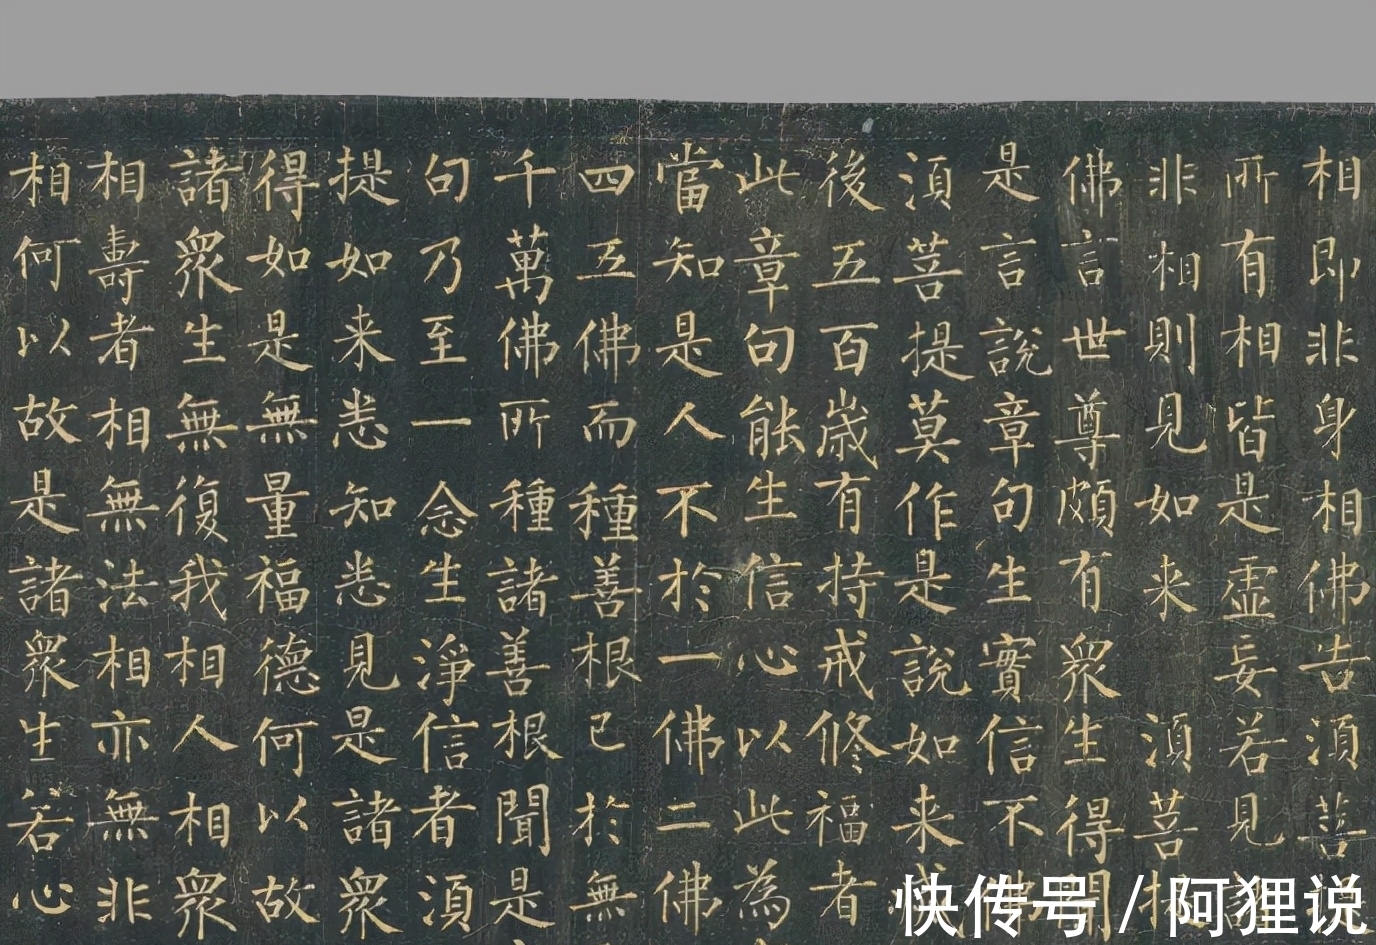 相即非身相佛告須菩提
所有相皆是虛妄若見諸
非相相則見如来須菩提
佛言世尊頗有衆生得聞
是言說章句生實信不佛
須菩提莫作是說如来滅
後五百歲有持戒修福者
此章句能生信心以此為
當知是人不於一佛二佛
四五佛而種善根已於無
千萬佛所種諸善根聞是
句乃至一念生淨信者須
提如来悉知悉見是諸衆
得如是無量福德何以故
諸衆生無復我相人相衆
相壽者相無法相亦無非
相何以故是諸衆生若心
快传号/阿狸说